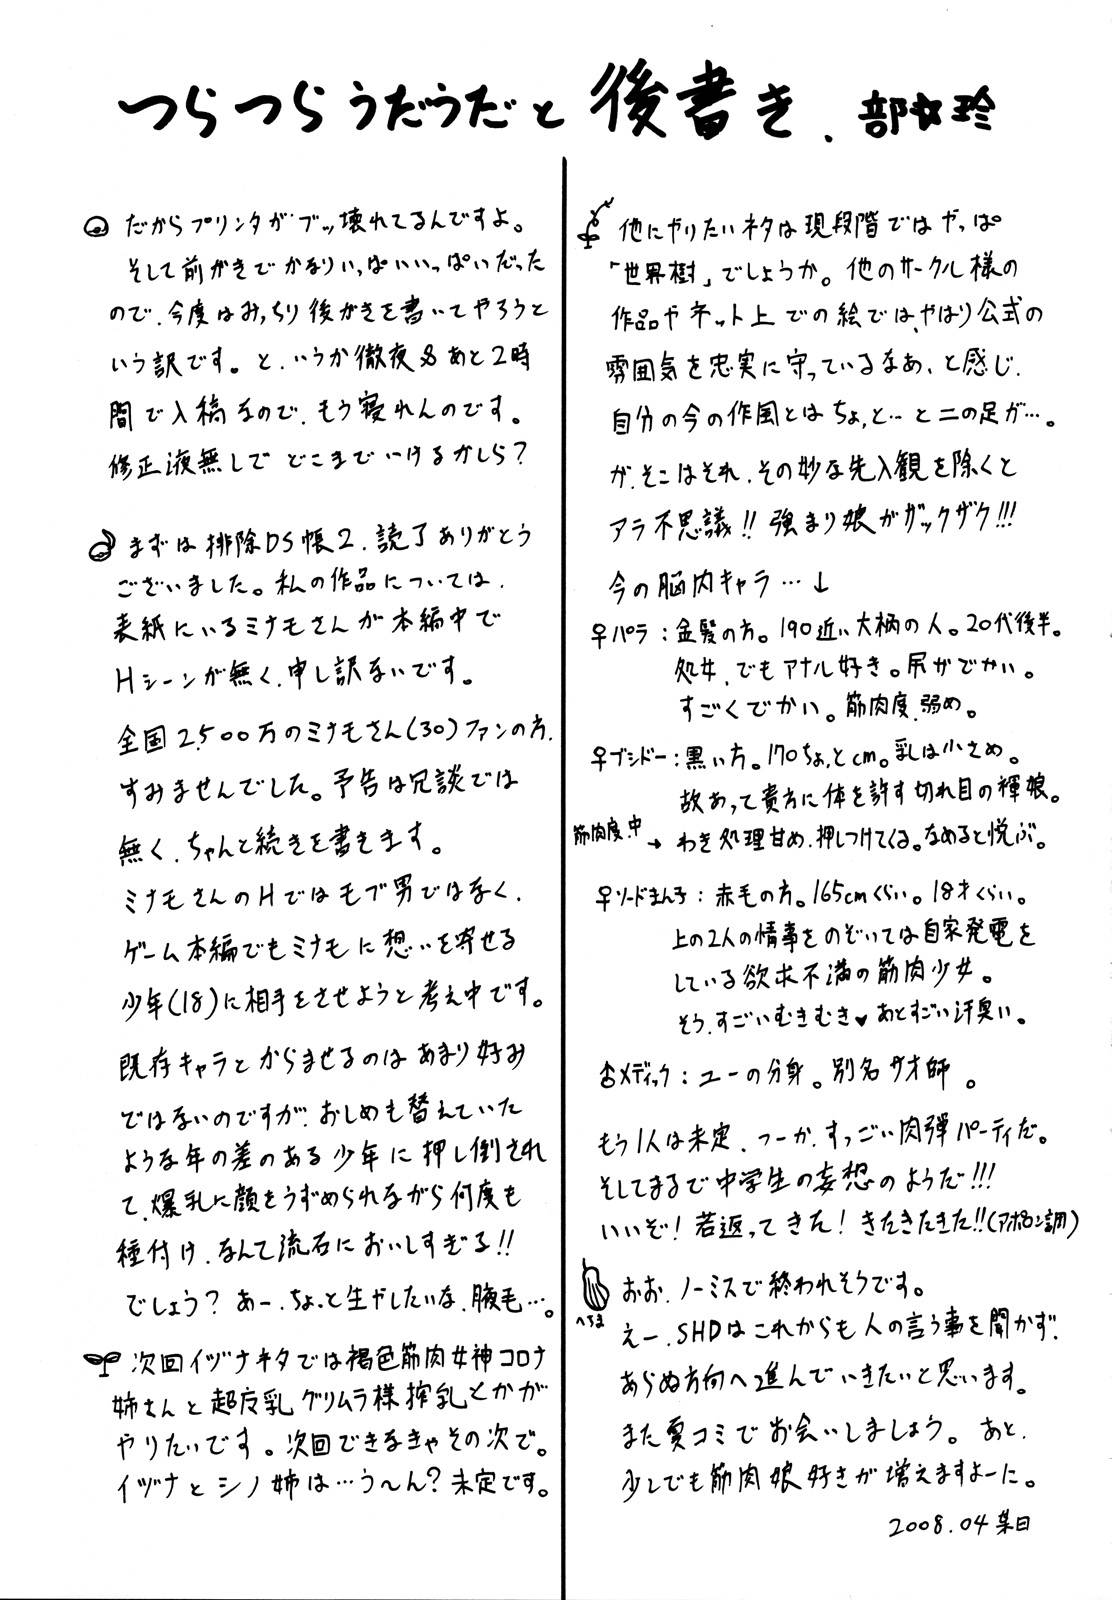 つらつらうだうだと後書き. 部☆玲
だからプリンタがブッ壊れてるんですよ。
そして前がきでかなりいっぱいいっぱいだった
ので、今度はみっちり後がきを書いてやろうと
いう訳です。と、いうか徹夜&あと2時
間で入稿なので、もう寝れんのです。
修正液無しでどこまでいけるかしら?
まずは排除DS帳2、読了ありがとう
ございました。私の作品については、
表紙にいるミナモさんが本編中で
Hシーンが無く、申し訳ないです。
全国2,500万のミナモさん(30)ファンの方、
すみませんでした。予告は冗談では
無く、ちゃんと続きを書きます。
ミナモさんのHではモブ男ではなく、
ゲーム本編でもミナモに想いを寄せる
少年(18)に相手をさせようと考え中です。
既存キャラとからませるのはあまり好み
ではないのですが、おしめも替えていた
ような年の差のある少年に押し倒され
て、爆乳に顔をうずめられながら何度も
種付け、なんて流石においしすぎる!!
でしょう? あー、ちょっと生やしたいな、腋毛…。
次回イヅナネタでは褐色筋肉女神コロナ
姉さんと超反乳グリムラ様搾乳とかが
やりたいです。次回できなきゃその次で。
イヅナとシノ姉は…う〜ん?未定です。
他にやりたいネタは現段階ではやっぱ
「世界樹」でしょうか。他のサークル様の
作品やネット上での絵では、やはり公式の
雰囲気を忠実に守っているなあ、と感じ、
自分の今の作風とはちょっと…と二の足が…。
が、そこはそれ、その妙な先入観を除くと
アラ不思議!! 強まり娘がザックザク!!!
今の脳内キャラ…↓
♀パラ:金髪の方。190近い大柄の人。20代後半。
処女、でもアナル好き。尻がでかい。
すごくでかい。筋肉度、弱め。
♀ブシドー:黒い方。170ちょっとcm。乳は小さめ。
故あって貴方に体を許す切れ目の褌娘。
筋肉度、中
→ わき処理甘め、押しつけてくる。なめると悦ぶ。
♀ソードまん子:赤毛の方。165cmくらい。18才くらい。
上の2人の情事をのぞいては自家発電を
している欲求不満の筋肉少女。
そう、すごいむきむき♥ あとすごい汗臭い。
♂メディック:ユーの分身。別名サオ師。
もう1人は未定、つーか、すっごい肉弾パーティだ。
そしてまるで中学生の妄想のようだ!!!
いいぞ! 若返ってきた! きたきたきた!!(アポロン調)
へちま
おお、ノーミスで終われそうです。
えー、SHDはこれからも人の言う事を聞かず、
あらぬ方向へ進んでいきたいと思います。
また夏コミでお会いしましょう。あと、
少しでも筋肉娘好きが増えますよーに。
2008.04某日